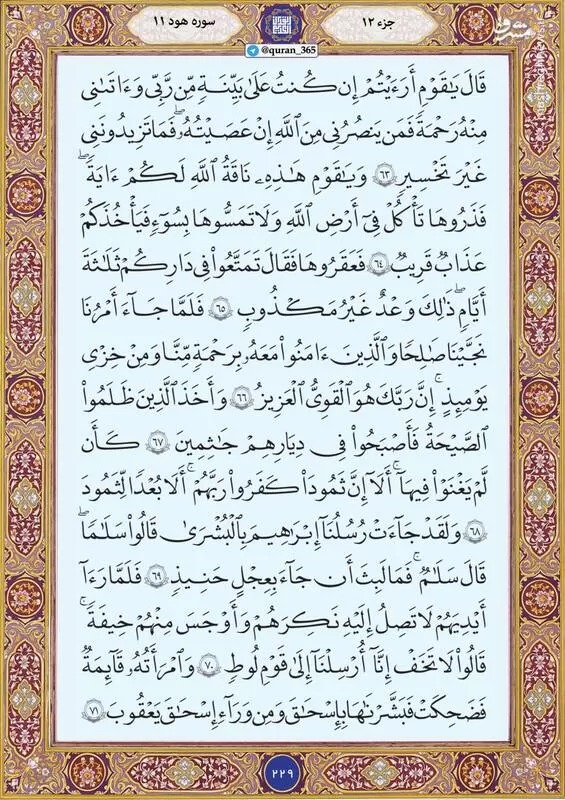 جزء ۱۲
سوره هود ۱۱
@quran_365
مشرق
قَالَ يَٰقَوْمِ أَرَءَيْتُمْ إِن كُنتُ عَلَىٰ بَيِّنَةٍ مِّن رَّبِّى وَءَاتَىٰنِى
مِنْهُ رَحْمَةً فَمَن يَنصُرُنِى مِنَ ٱللَّهِ إِنْ عَصَيْتُهُۥ ۖ فَمَا تَزِيدُونَنِى
غَيْرَ تَخْسِيرٍ ٦٣ وَيَٰقَوْمِ هَٰذِهِۦ نَاقَةُ ٱللَّهِ لَكُمْ ءَايَةً ۖ
فَذَرُوهَا تَأْكُلْ فِىٓ أَرْضِ ٱللَّهِ وَلَا تَمَسُّوهَا بِسُوٓءٍ فَيَأْخُذَكُمْ
عَذَابٌ قَرِيبٌ ٦٤ فَعَقَرُوهَا فَقَالَ تَمَتَّعُوا۟ فِى دَارِكُمْ ثَلَٰثَةَ
أَيَّامٍ ۖ ذَٰلِكَ وَعْدٌ غَيْرُ مَكْذُوبٍ ٦٥ فَلَمَّا جَآءَ أَمْرُنَا
نَجَّيْنَا صَٰلِحًا وَٱلَّذِينَ ءَامَنُوا۟ مَعَهُۥ بِرَحْمَةٍ مِّنَّا وَمِنْ خِزْىِ
يَوْمِئِذٍ ۗ إِنَّ رَبَّكَ هُوَ ٱلْقَوِىُّ ٱلْعَزِيزُ ٦٦ وَأَخَذَ ٱلَّذِينَ ظَلَمُوا۟
ٱلصَّيْحَةُ فَأَصْبَحُوا۟ فِى دِيَٰرِهِمْ جَٰثِمِينَ ٦٧ كَأَن
لَّمْ يَغْنَوْا۟ فِيهَآ ۗ أَلَآ إِنَّ ثَمُودَا۟ كَفَرُوا۟ رَبَّهُمْ ۗ أَلَا بُعْدًا لِّثَمُودَ
٦٨ وَلَقَدْ جَآءَتْ رُسُلُنَآ إِبْرَٰهِيمَ بِٱلْبُشْرَىٰ قَالُوا۟ سَلَٰمًا ۖ
قَالَ سَلَٰمٌ ۖ فَمَا لَبِثَ أَن جَآءَ بِعِجْلٍ حَنِيذٍ ٦٩ فَلَمَّا رَءَآ
أَيْدِيَهُمْ لَا تَصِلُ إِلَيْهِ نَكِرَهُمْ وَأَوْجَسَ مِنْهُمْ خِيفَةً ۚ
قَالُوا۟ لَا تَخَفْ إِنَّآ أُرْسِلْنَآ إِلَىٰ قَوْمِ لُوطٍ ٧٠ وَٱمْرَأَتُهُۥ قَآئِمَةٌ
فَضَحِكَتْ فَبَشَّرْنَٰهَا بِإِسْحَٰقَ وَمِن وَرَآءِ إِسْحَٰقَ يَعْقُوبَ ٧١
۲۲۹